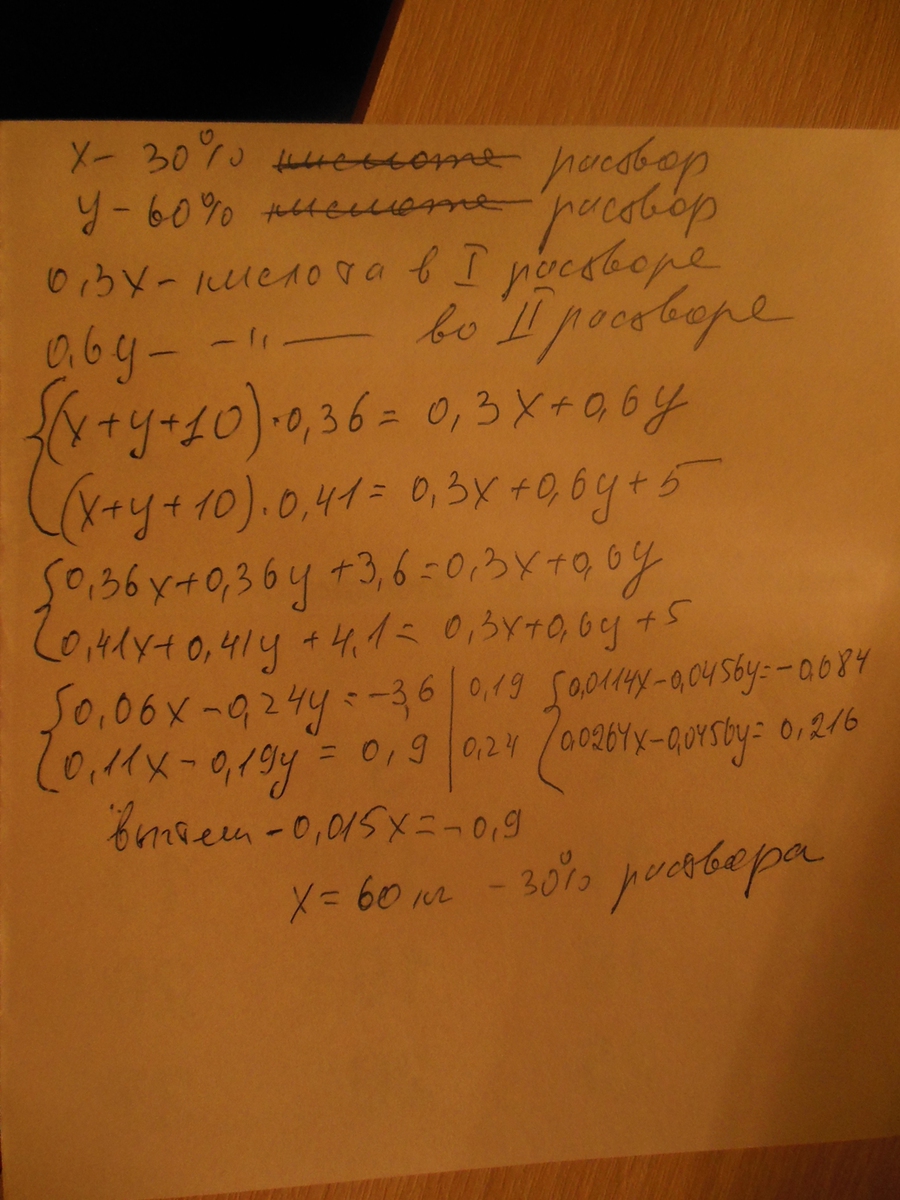 x - 30% кислота раствор
y - 60% кислота раствор
0,3x - кислота в I растворе
0,6y - -"- во II растворе
(x+y+10)·0,36 = 0,3x+0,6y
(x+y+10)·0,41 = 0,3x+0,6y+5
0,36x+0,36y+3,6=0,3x+0,6y
0,41x+0,41y+4,1= 0,3x+0,6y+5
0,06x-0,24y=-3,6 | 0,19 0,0114x-0,0456y=-0,684
0,11x-0,19y = 0,9 | 0,24 0,0264x-0,0456y= 0,216
вычтем -0,015x=-0,9
x= 60 кг - 30% раствора